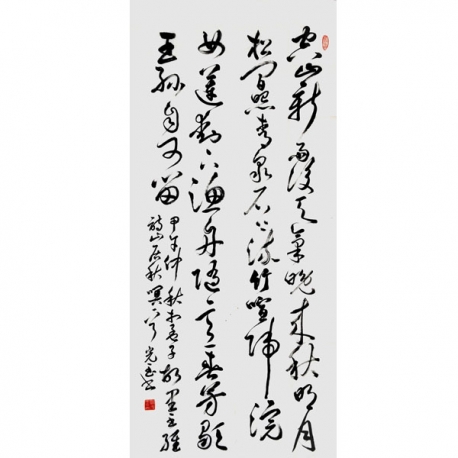 空山新雨後天氣晚來秋明月
松間照清泉石上流竹喧歸浣
女蓮動下漁舟隨意春芳歇
王孫自可留
甲午仲秋於孟子故里王維
詩山居秋暝